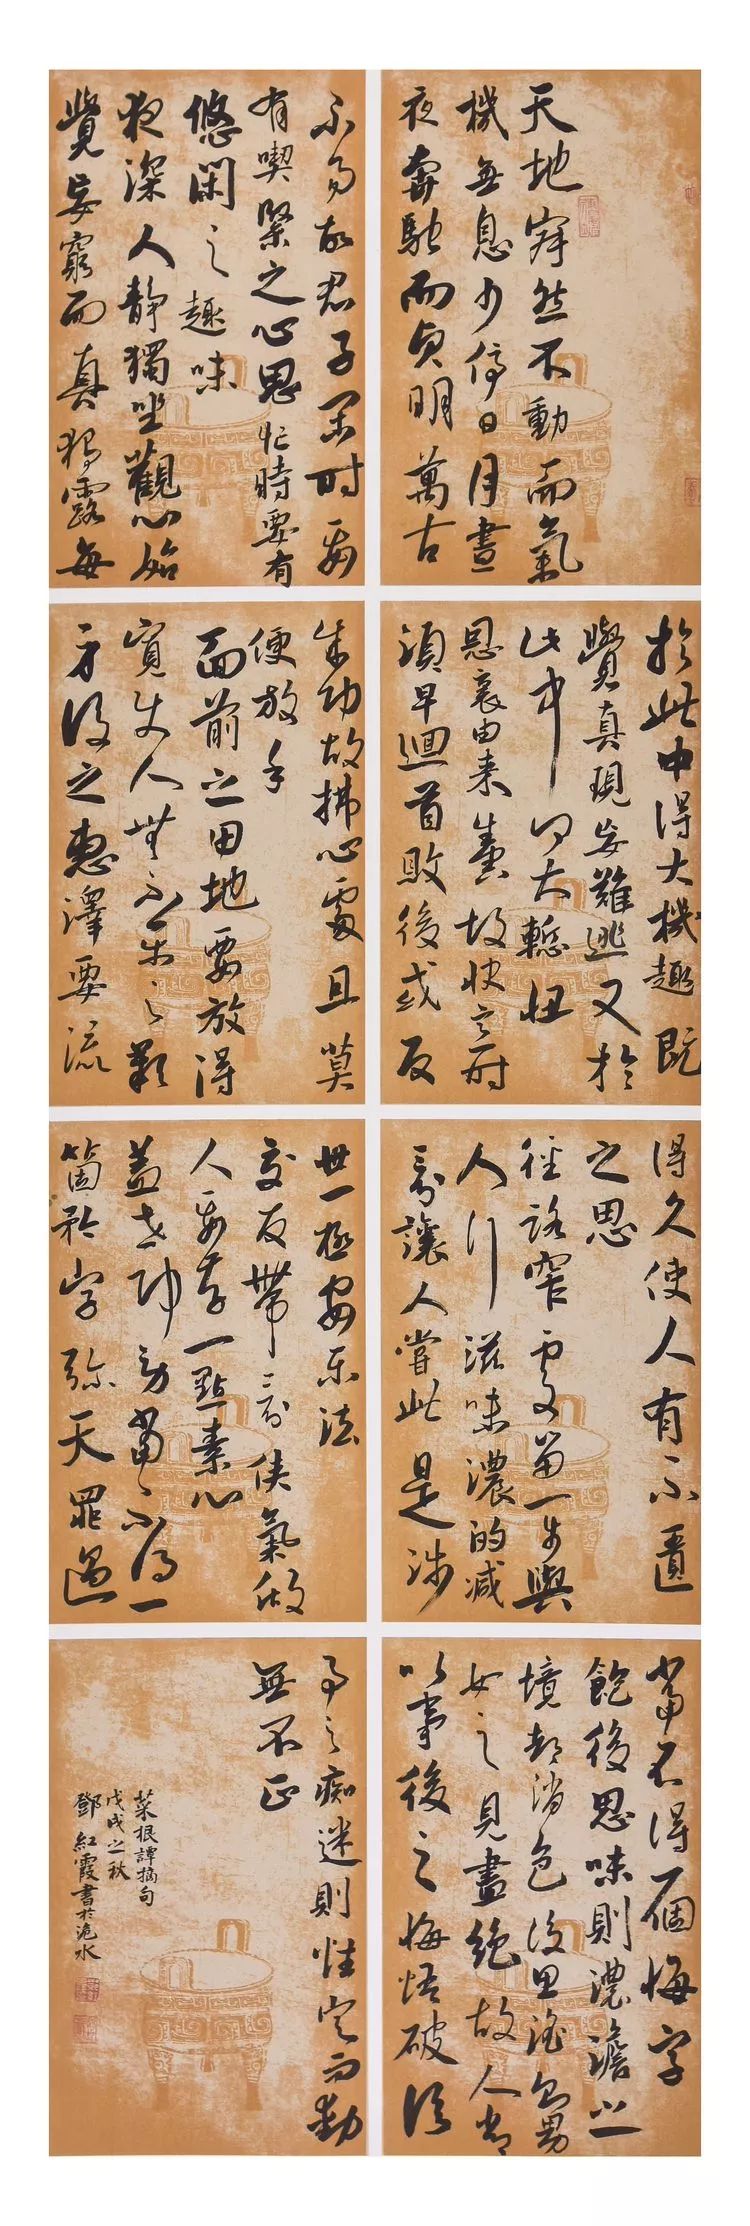 天地寂然不動而氣
機無息少停日月晝
夜奔馳而貞明萬古
不易故君子閑时要
有喫緊之心思忙時要有
悠閑之趣味
夜深人静獨坐觀心始
覺妄窮而真獨露每
於此中得大機趣既
覺真現妄難逃又於
此中得大慙忸
恩裏由来生害故快意时
須早迴首敗後或反
成功故拂心處且莫
便放手
面前之田地要放得
寬使人無不平之歎
身後之惠澤要流
得久使人有不匱
之思
徑路窄處留一步與
人行滋味濃的减
三分讓人嘗此是涉
世一極安樂法
交友帶三分俠氣做
人要存一點素心
蓋世功勞當不得一
箇矜字弥天罪過
當不得一個悔字
飽後思味則濃澹之
境都消色後思淫則男
女之見盡絶故人常
以事後之悔悟破臨
事之痴迷則性定而動
無不正
菜根譚摘句
戊戌之秋
鄧紅霞書於洈水